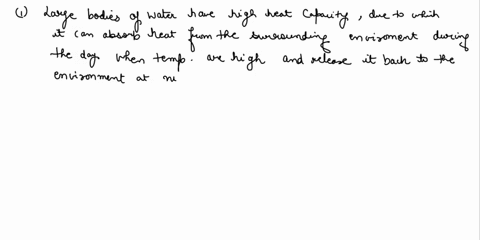 (1) Large bodies of water have high heat capacity, due to which
it can absorb heat from the surrounding enviroment during
the day when temp. are high and release it back to the
environment at ni